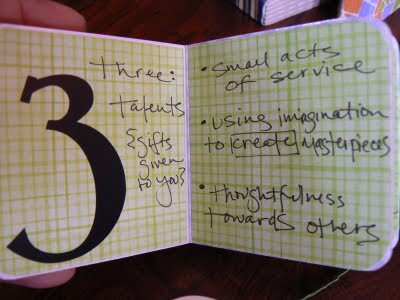 3
three:
talents
{gifts
given
to you}
• small acts
of service
• using imagination
to create masterpieces
• thoughtfulness
towards others